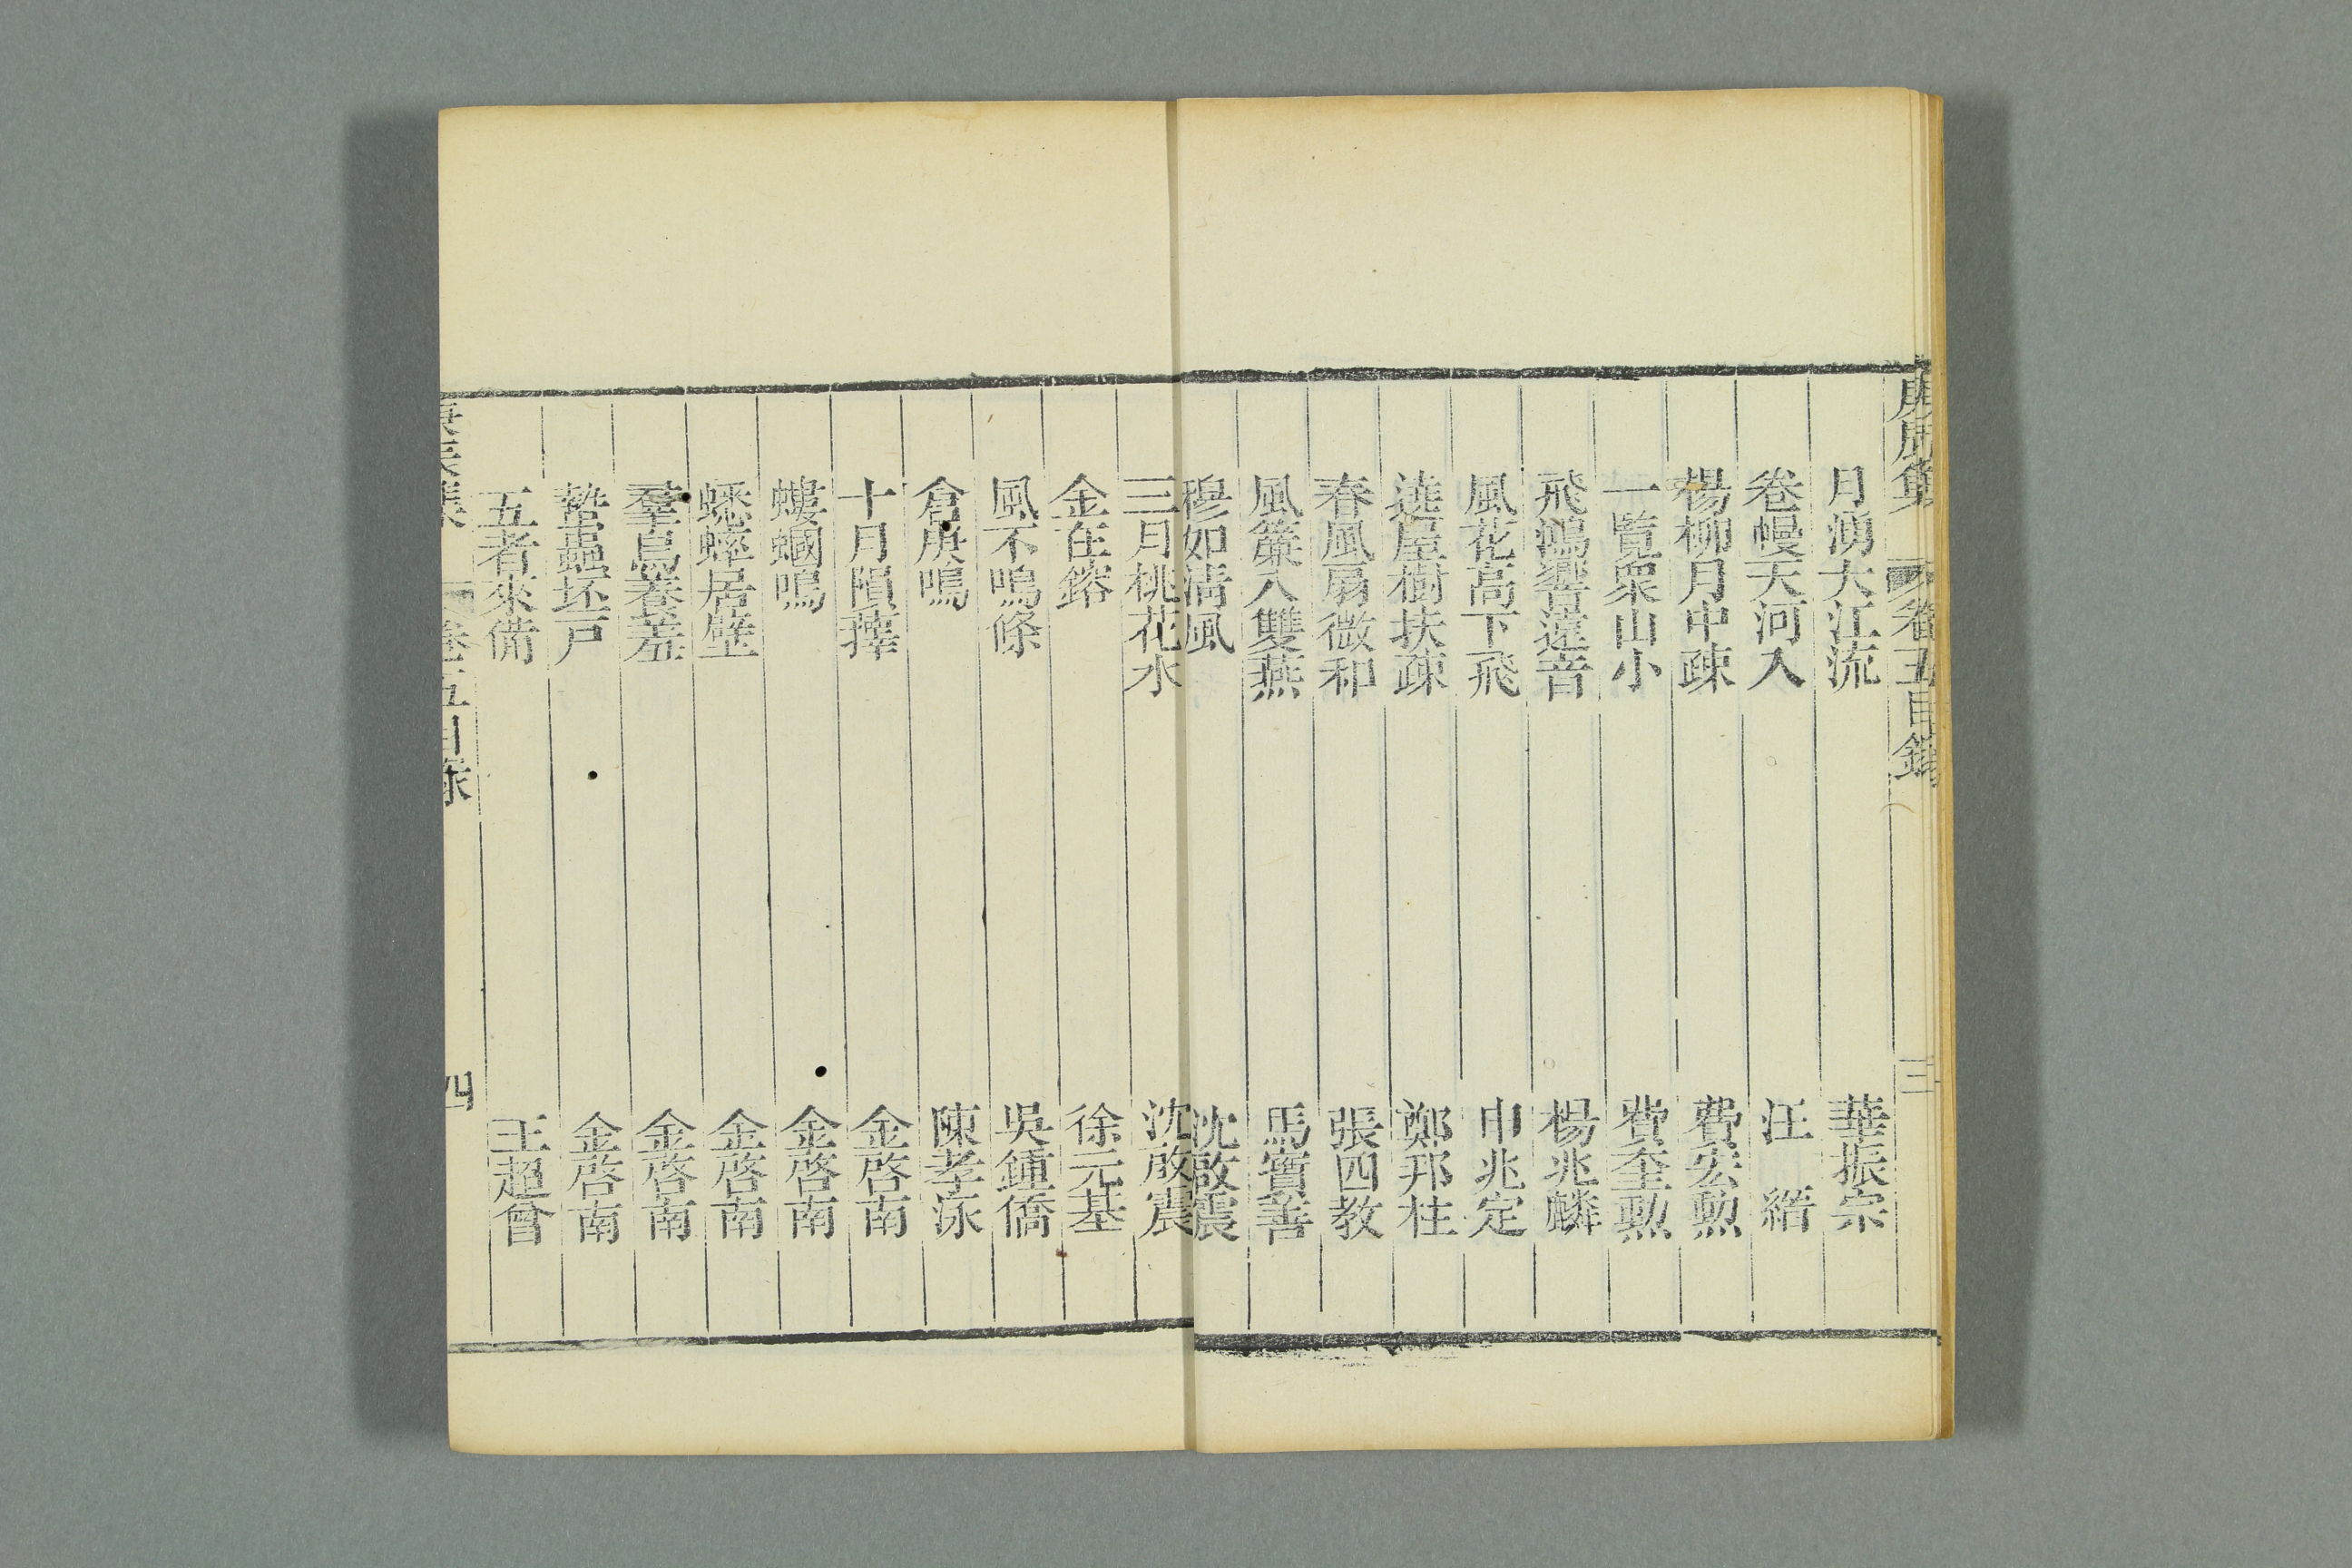 庚辰集 卷五目錄 三
月湧大江流 華振宗
卷幔天河入 汪縉
楊柳月中疎 費宏勲
一覽衆山小 費奎勲
飛鴻響遠音 楊兆麟
風花高下飛 申兆定
遶屋樹扶疎 鄭邦柱
春風扇微和 張四教
風簾入雙燕 馬寶善
穆如淸風 沈啟震
三月桃花水 沈啟震
金在鎔 徐元基
風不鳴條 吳鍾僑
倉庚鳴 陳孝泳
十月隕蘀 金啓南
螻蟈鳴 金啓南
蟋蟀居壁 金啓南
羣鳥養羞 金啓南
蟄蟲坯戸 金啓南
五者來備 王超曾
庚辰集 卷五目錄 四